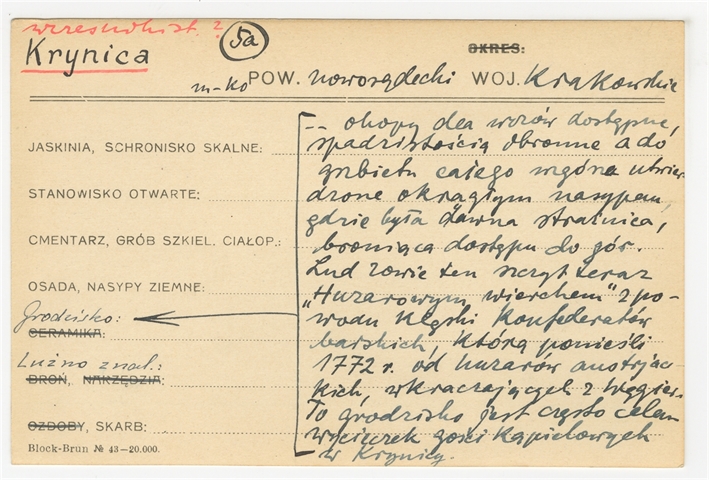 wczesnohist. ?
Krynica
5a
OKRES:
m-ko POW. nowosądecki WOJ. Krakowskie
JASKINIA, SCHRONISKO SKALNE:
STANOWISKO OTWARTE:
CMENTARZ, GRÓB SZKIEL. CIAŁOP.:
OSADA, NASYPY ZIEMNE:
Grodzisko:
CERAMIKA:
Luźno znal.:
BROŃ, NARZĘDZIA:
OZDOBY, SKARB:
Block-Brun № 43-20.000.
-- okopy dla wozów dostępne,
spadzistością obronne a do
grzbietu całego wzgórza utwier-
dzone okrągłym nasypem,
gdzie była dawna strażnica,
broniąca dostępu do gór.
Lud zowie ten szczyt teraz
"Huzarowym wierchem" z po-
wodu klęski Konfederatów
barskich, którą ponieśli
1772 r. od huzarów austrjac-
kich, wkraczających z Węgier.
To grodzisko jest często celem
wycieczek gości kąpielowych
w Krynicy.